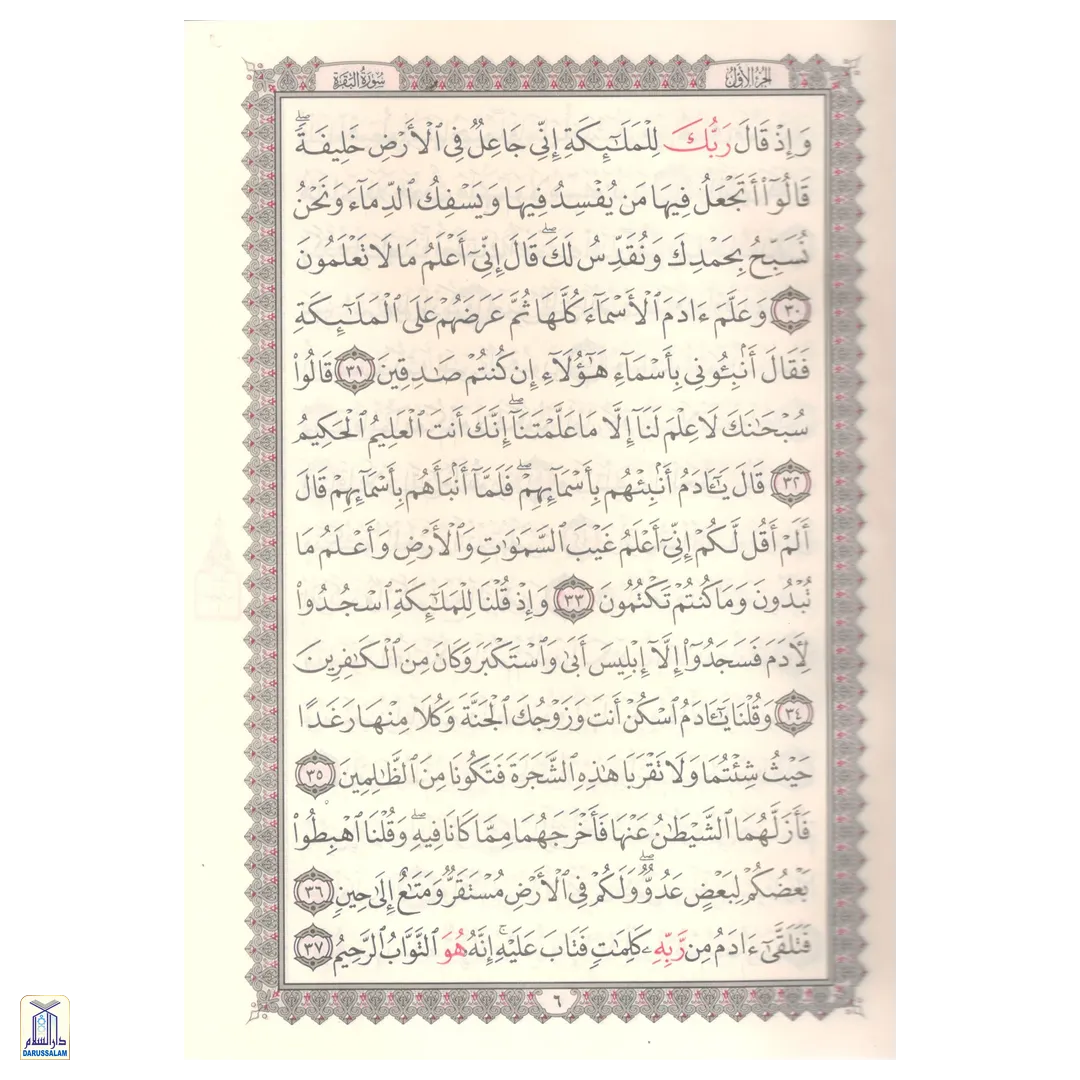 الجزء الأول
سورة البقرة
وَإِذْ قَالَ رَبُّكَ لِلْمَلَٰٓئِكَةِ إِنِّى جَاعِلٌ فِى ٱلْأَرْضِ خَلِيفَةً ۖ
قَالُوٓا۟ أَتَجْعَلُ فِيهَا مَن يُفْسِدُ فِيهَا وَيَسْفِكُ ٱلدِّمَآءَ وَنَحْنُ
نُسَبِّحُ بِحَمْدِكَ وَنُقَدِّسُ لَكَ ۖ قَالَ إِنِّىٓ أَعْلَمُ مَا لَا تَعْلَمُونَ
٣٠ وَعَلَّمَ ءَادَمَ ٱلْأَسْمَآءَ كُلَّهَا ثُمَّ عَرَضَهُمْ عَلَى ٱلْمَلَٰٓئِكَةِ
فَقَالَ أَنۢبِـُٔونِى بِأَسْمَآءِ هَٰٓؤُلَآءِ إِن كُنتُمْ صَٰدِقِينَ ٣١ قَالُوا۟
سُبْحَٰنَكَ لَا عِلْمَ لَنَآ إِلَّا مَا عَلَّمْتَنَآ ۖ إِنَّكَ أَنتَ ٱلْعَلِيمُ ٱلْحَكِيمُ
٣٢ قَالَ يَٰٓـَٔادَمُ أَنۢبِئْهُم بِأَسْمَآئِهِمْ ۖ فَلَمَّآ أَنۢبَأَهُم بِأَسْمَآئِهِمْ قَالَ
أَلَمْ أَقُل لَّكُمْ إِنِّىٓ أَعْلَمُ غَيْبَ ٱلسَّمَٰوَٰتِ وَٱلْأَرْضِ وَأَعْلَمُ مَا
تُبْدُونَ وَمَا كُنتُمْ تَكْتُمُونَ ٣٣ وَإِذْ قُلْنَا لِلْمَلَٰٓئِكَةِ ٱسْجُدُوا۟
لِـَٔادَمَ فَسَجَدُوٓا۟ إِلَّآ إِبْلِيسَ أَبَىٰ وَٱسْتَكْبَرَ وَكَانَ مِنَ ٱلْكَٰفِرِينَ
٣٤ وَقُلْنَا يَٰٓـَٔادَمُ ٱسْكُنْ أَنتَ وَزَوْجُكَ ٱلْجَنَّةَ وَكُلَا مِنْهَا رَغَدًا
حَيْثُ شِئْتُمَا وَلَا تَقْرَبَا هَٰذِهِ ٱلشَّجَرَةَ فَتَكُونَا مِنَ ٱلظَّٰلِمِينَ ٣٥
فَأَزَلَّهُمَا ٱلشَّيْطَٰنُ عَنْهَا فَأَخْرَجَهُمَا مِمَّا كَانَا فِيهِ ۖ وَقُلْنَا ٱهْبِطُوا۟
بَعْضُكُمْ لِبَعْضٍ عَدُوٌّ ۖ وَلَكُمْ فِى ٱلْأَرْضِ مُسْتَقَرٌّ وَمَتَٰعٌ إِلَىٰ حِينٍ ٣٦
فَتَلَقَّىٰٓ ءَادَمُ مِن رَّبِّهِۦ كَلِمَٰتٍ فَتَابَ عَلَيْهِ ۚ إِنَّهُۥ هُوَ ٱلتَّوَّابُ ٱلرَّحِيمُ ٣٧
٦
دار السلام
DARUSSALAM